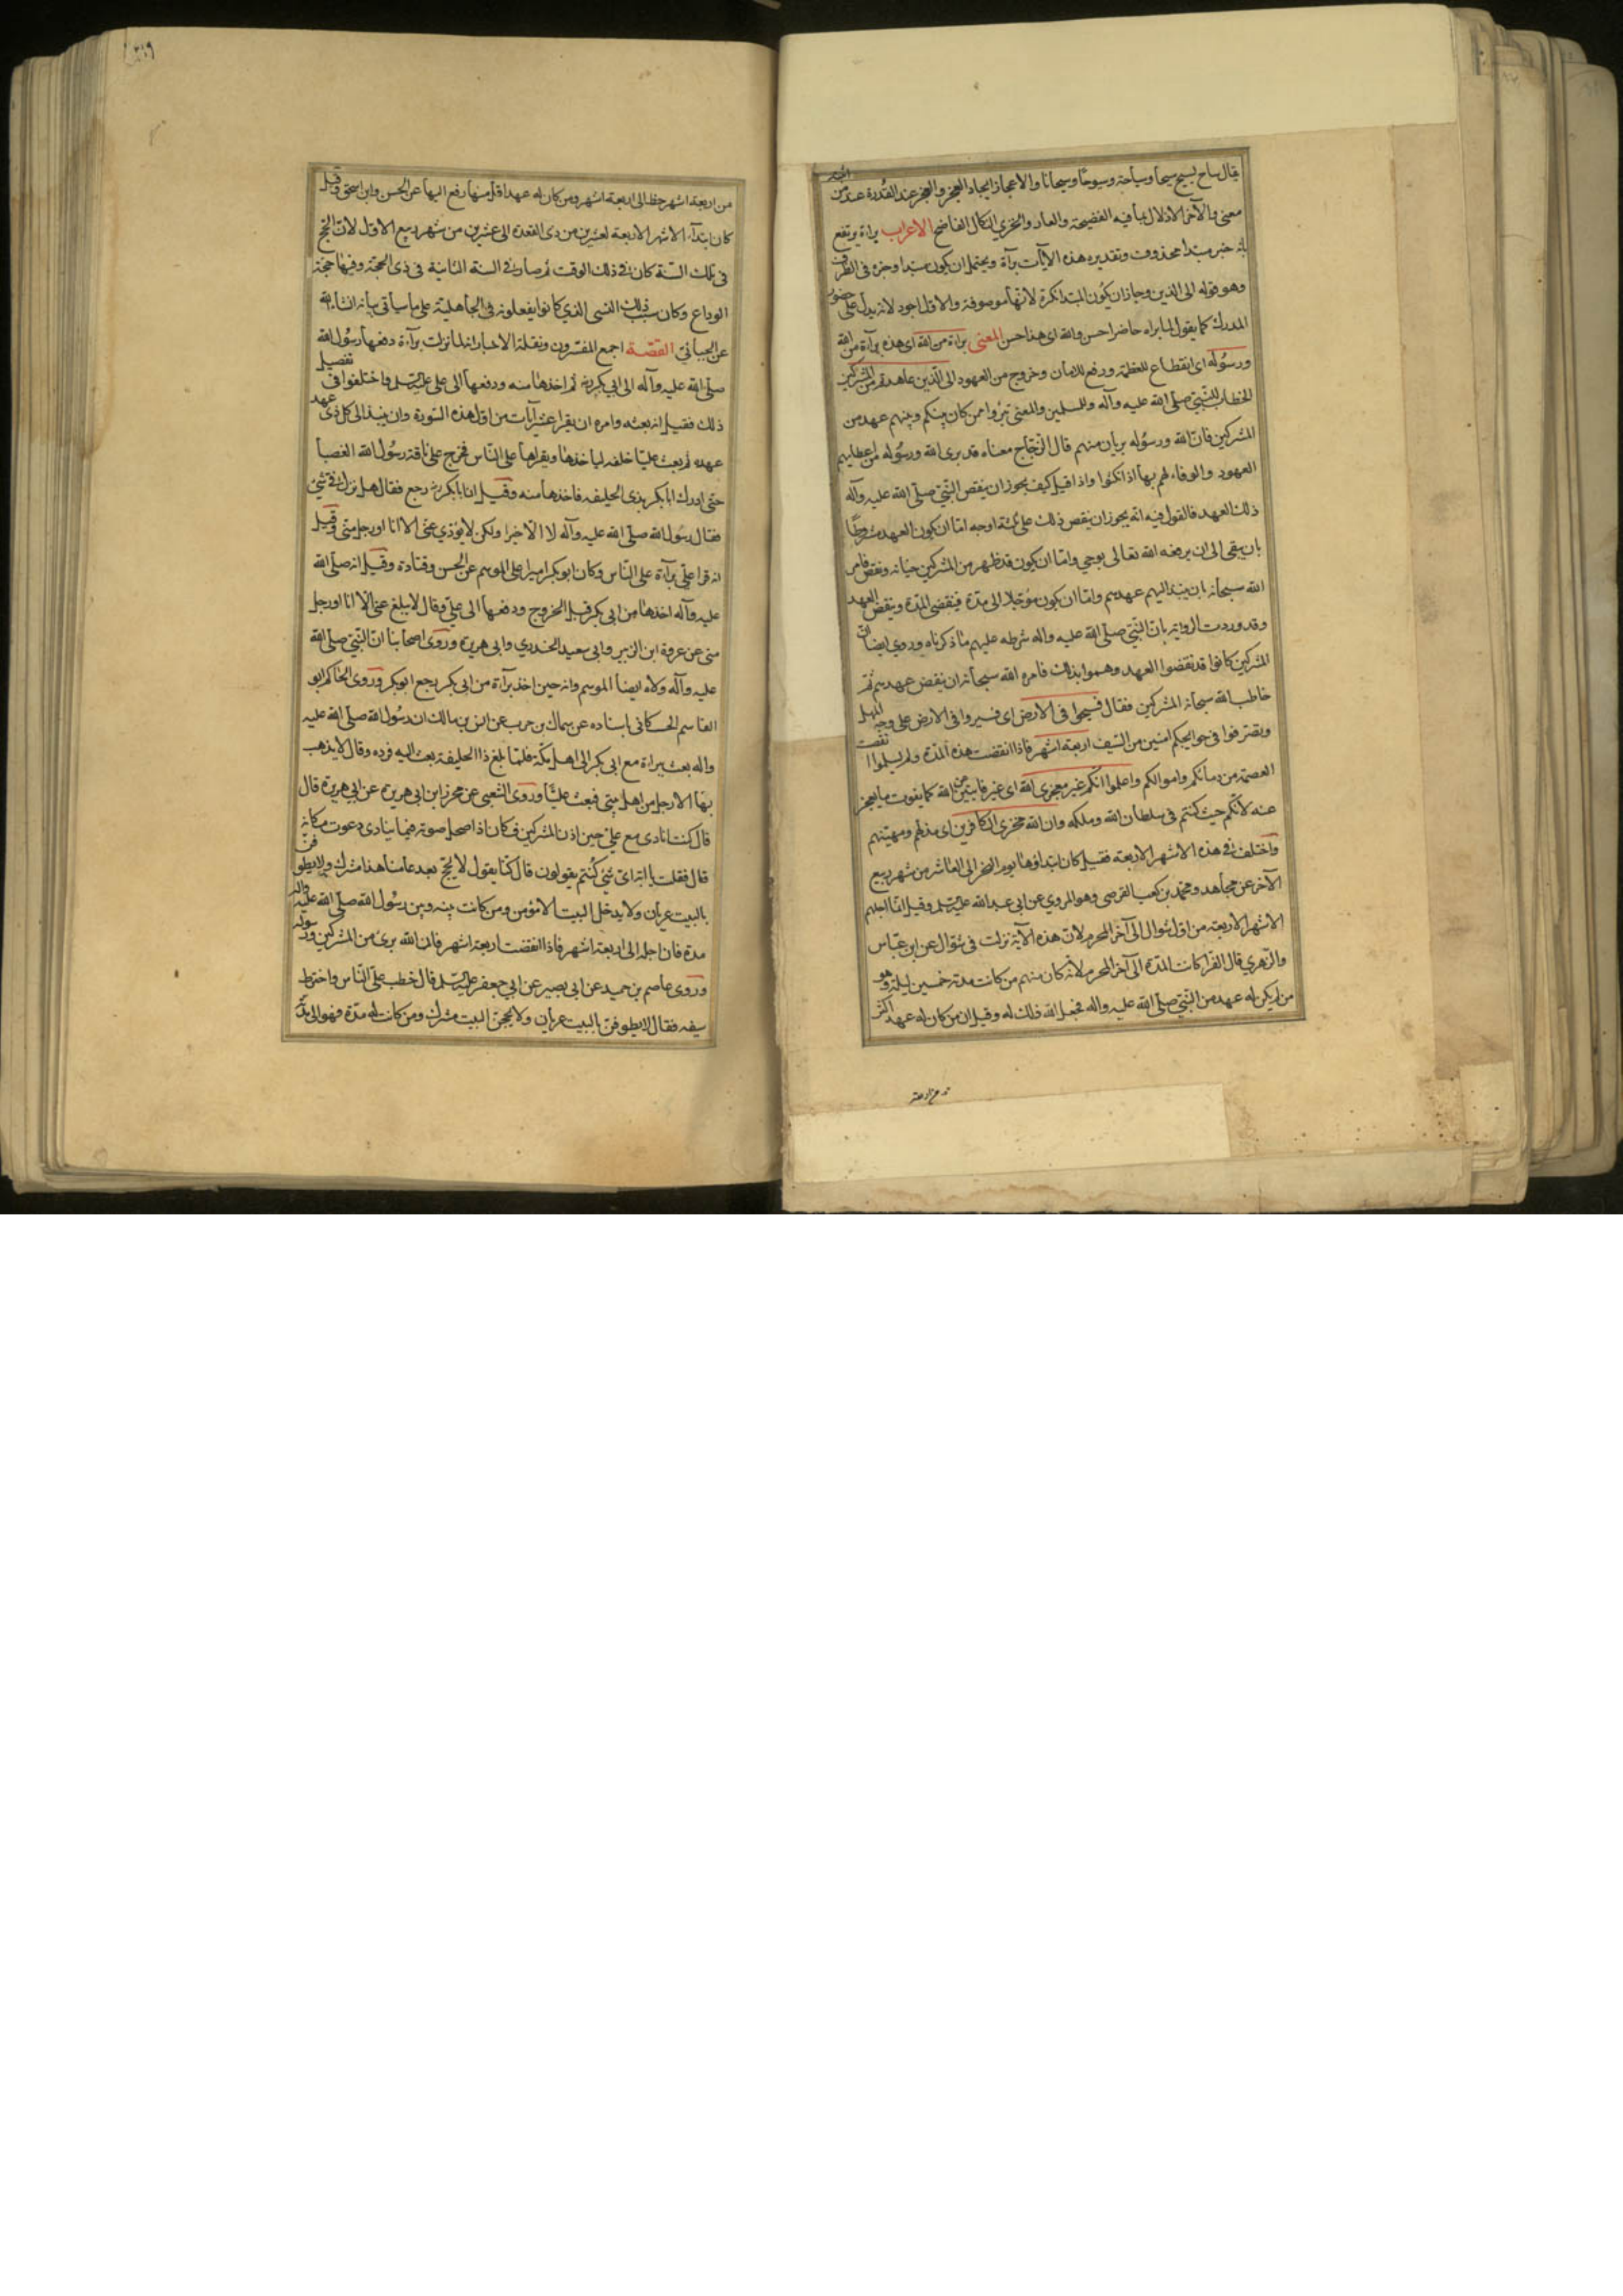 يقال ساح يسيح سيحا وسياحة وسيوحا وسيحانا والاعجاز ايجاد العجز والعجز عند القدرة عند من
معنى والآخر الاذلال بما فيه الفضيحة والعار والخزي النكال الفاضح الاعراب براءة يرتفع
بانه خبر مبتدا محذوف وتقديره هذه الآيات برآة ويحتمل ان يكون مبتدا وخبره في الظرف
وهو قوله الى الذين وجاز ان يكون المبتدا نكرة لانها موصوفة والاول اجود لانه يدل على حضور
المدرك كما يقول لما يراه حاضرا حسن والله اى هذا حسن المعنى براءة من الله اى هذه برآة من الله
ورسوله اى انقطاع للعظمة ورفع للامان وخروج من العهود الى الذين عاهدتم من المشركين
الخطاب للنبي صلى الله عليه وآله وللمسلين والمعنى تبرؤا ممن كان بينكم وبينهم عهد من
المشركين فان الله ورسوله بريان منهم قال الزجاج معناه قد برى الله ورسوله من اعطايهم
العهود والوفاء لهم بها اذا نكثوا واذا قيل كيف يجوز ان ينقض النبي صلى الله عليه وآله
ذلك العهد فالقول فيه انه يجوز ان ينقض ذلك على ثلثة اوجه اما ان يكون العهد مشروطا
بان يبقى الى ان يرفعه الله تعالى بوحي واما ان يكون قد ظهر من المشركين خيانه ونقض فامر
الله سبحانه بان ينبذ اليهم عهدهم واما ان يكون مؤجلا الى مدة فينقضى المدة وينقض العهد
وقد وردت الرواية بان النبي صلى الله عليه واله شرطه عليهم ما ذكرناه وروي ايضا ان
المشركين كانوا قد نقضوا العهد وهموا بذلك فامره الله سبحانه ان ينقض عهدهم ثم
خاطب الله سبحانه المشركين فقال فسيحوا فى الارض اى فسيروا فى الارض على وجه المهل
وتصرفوا فى حوايجكم امنين من السيف اربعة اشهر فاذا انقضت هذه المدة ولم يسلموا انقضت
العصمة من دمائكم واموالكم واعلموا انكم غير معجزى الله اى غير فايتين عن الله كما يفوت ما يعجز
عنه لانكم حيث كنتم فى سلطان الله وملكه وان الله مخزى الكافرين اى مذلهم ومهينهم
واختلف فى هذه الاشهر الاربعة فقيل كان ابتداؤها يوم النحر الى العاشر من شهر ربيع
الآخر عن مجاهد ومحمد بن كعب القرصى وهو المروي عن ابى عبد الله عليه السلم وقيل انما اجلهم
الاشهر الاربعة من اول شوال الى آخر المحرم لان هذه الآية نزلت فى شوال عن ابن عباس
والزهري قال الفرا كانت المدة الى آخر المحرم لانه كان منهم من كانت مدته خمسين ليلة وهو
من لم يكن له عهد من النبي صلى الله عليه واله فجعل الله ذلك له وقيل ان من كان له عهد اكثر
من اربعة
من اربعة اشهر حط الى اربعة اشهر ومن كان له عهد اقل منها رفع اليها عن الحسن وابن اسحق وقيل
كان ابتدآء الاشهر الاربعة لعشرين من ذى القعدة الى عشرين من شهر ربيع الاول لان الحج
فى تلك السنة كان فى ذلك الوقت ثم صار فى السنة الثانية فى ذى الحجة وفيها حجة
الوداع وكان سبب ذلك النسي الذي كانوا يفعلونه فى الجاهلية على ما سيأتى بيانه ان شا الله
عن الجبائي القصة اجمع المفسرون ونقلة الاخبار انه لما نزلت برآءة دفعها رسول الله
صلى الله عليه وآله الى ابى بكر ثم اخذها منه ودفعها الى علي عليه السلم واختلفوا فى تفصيل
ذلك فقيل انه بعثه وامره ان يقرا عشر آيات من اول هذه السورة وان ينبذ الى كل ذى عهد
عهده ثم بعث عليا خلفه لياخذها ويقراها على الناس فخرج على ناقة رسول الله العضبا
حتى ادرك ابا بكر بذى الحليفه فاخذها منه وقيل ان ابا بكر رجع فقال هل نزل فى شئ
فقال رسول الله صلى الله عليه وآله لا الا خيرا ولكن لا يؤدي عنى الا انا او رجل منى وقيل
انه قرا علي برآة على الناس وكان ابو بكر اميرا على الموسم عن الحسن وقتادة وقيل انه صلى الله
عليه وآله اخذها من ابى بكر قبل الخروج ودفعها الى علي وقال لا يبلغ عنى الا انا او رجل
منى عن عروة ابن الزبير وابى سعيد الخدري وابى هريرة وروى اصحابنا ان النبي صلى الله
عليه وآله ولاه ايضا الموسم وانه حين اخذ برآءة من ابى بكر رجع ابو بكر وروى الحاكم ابو
القاسم الحسكانى باسناده عن سماك بن حرب عن انس بن مالك ان رسول الله صلى الله عليه
واله بعث ببراءة مع ابى بكر الى اهل مكة فلما بلغ ذا الحليفة بعث اليه فرده وقال لا يذهب
بها الا رجل من اهل بيتى فبعث عليا وروى الشعبى عن محرز ابن ابى هريرة عن ابى هريرة قال
قال كنت انادى مع علي حين اذن المشركين فكان اذا صحل صوته فيما ينادى دعوت مكانه
قال فقلت يا ابة اى شئ كنتم يقولون قال كنا يقول لا يحج بعد عامنا هذا مشرك ولا يطوفن
بالبيت عريان ولا يدخل البيت الا مؤمن ومن كانت بينه وبين رسول الله صلى الله عليه واله
مدة فان اجله الى اربعة اشهر فاذا انقضت اربعة اشهر فان الله برئ من المشركين ورسوله
وروى عاصم بن حميد عن ابى بصير عن ابى جعفر عليه السلم قال خطب علي الناس واخترط
سيفه فقال لا يطوفن بالبيت عريان ولا يحجن البيت مشرك ومن كانت له مدة فهو الى مدته